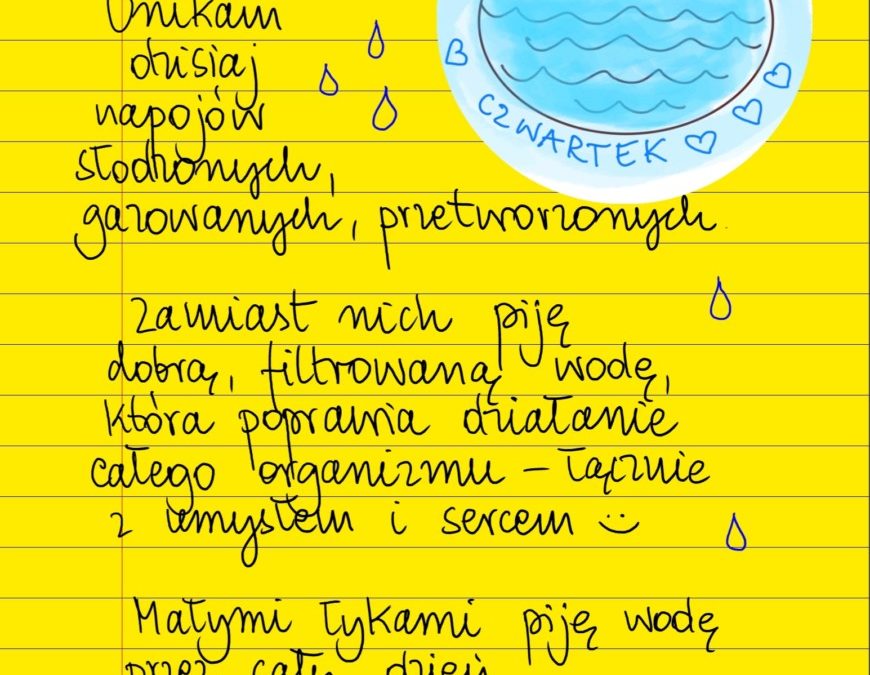 Unikam
dzisiaj
napojów
słodzonych,
gazowanych, przetworzonych.
CZWARTEK
Zamiast nich piję
dobrą, filtrowaną wodę,
która poprawia działanie
całego organizmu – łącznie
z umysłem i sercem :)
Małymi łykami piję wodę
przez cały dzień